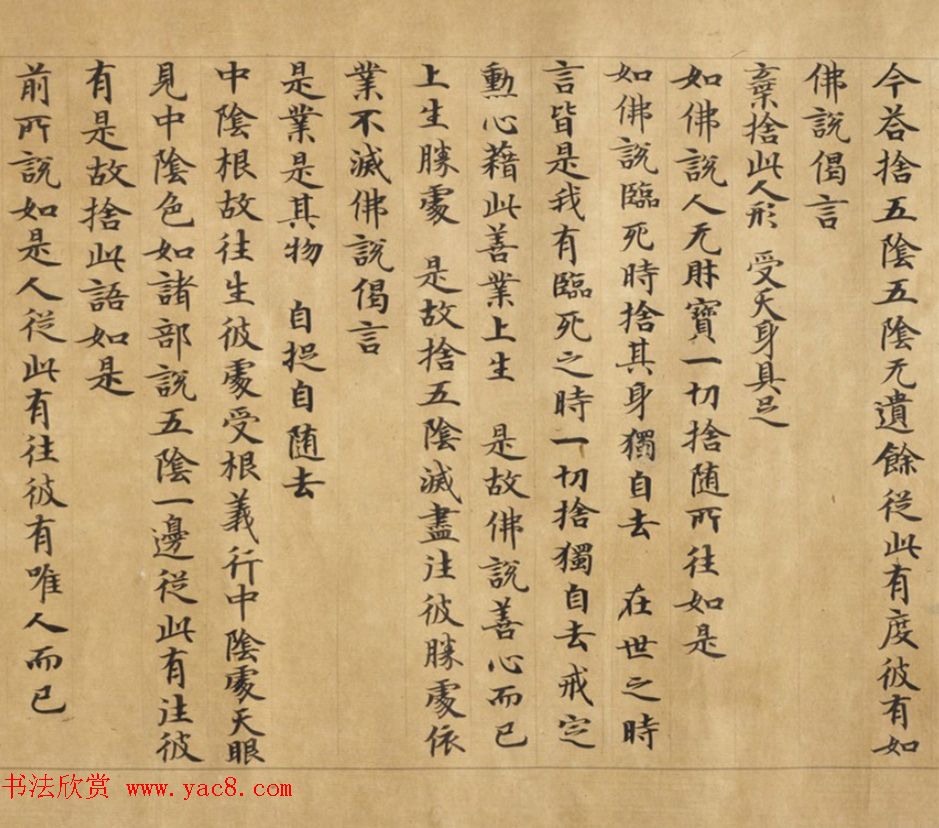 今荅捨五陰五陰无遺餘従此有度彼有如
佛說偈言
棄捨此人形 受天身具足
如佛說人无財寶一切捨随所往如是
如佛說臨死時捨其身獨自去 在世之時
言皆是我有臨死之時一切捨獨自去戒定
勲心藉此善業上生 是故佛說善心而已
上生勝處 是故捨五陰滅盡注彼勝處依
業不滅佛說偈言
是業是其物 自捉自随去
中陰根故往生彼處受根義行中陰處天眼
見中陰色如諸部說五陰一邊従此有注彼
有是故捨此語如是
前所說如是人従此有往彼有唯人而已
书法欣赏 www.yac8.com